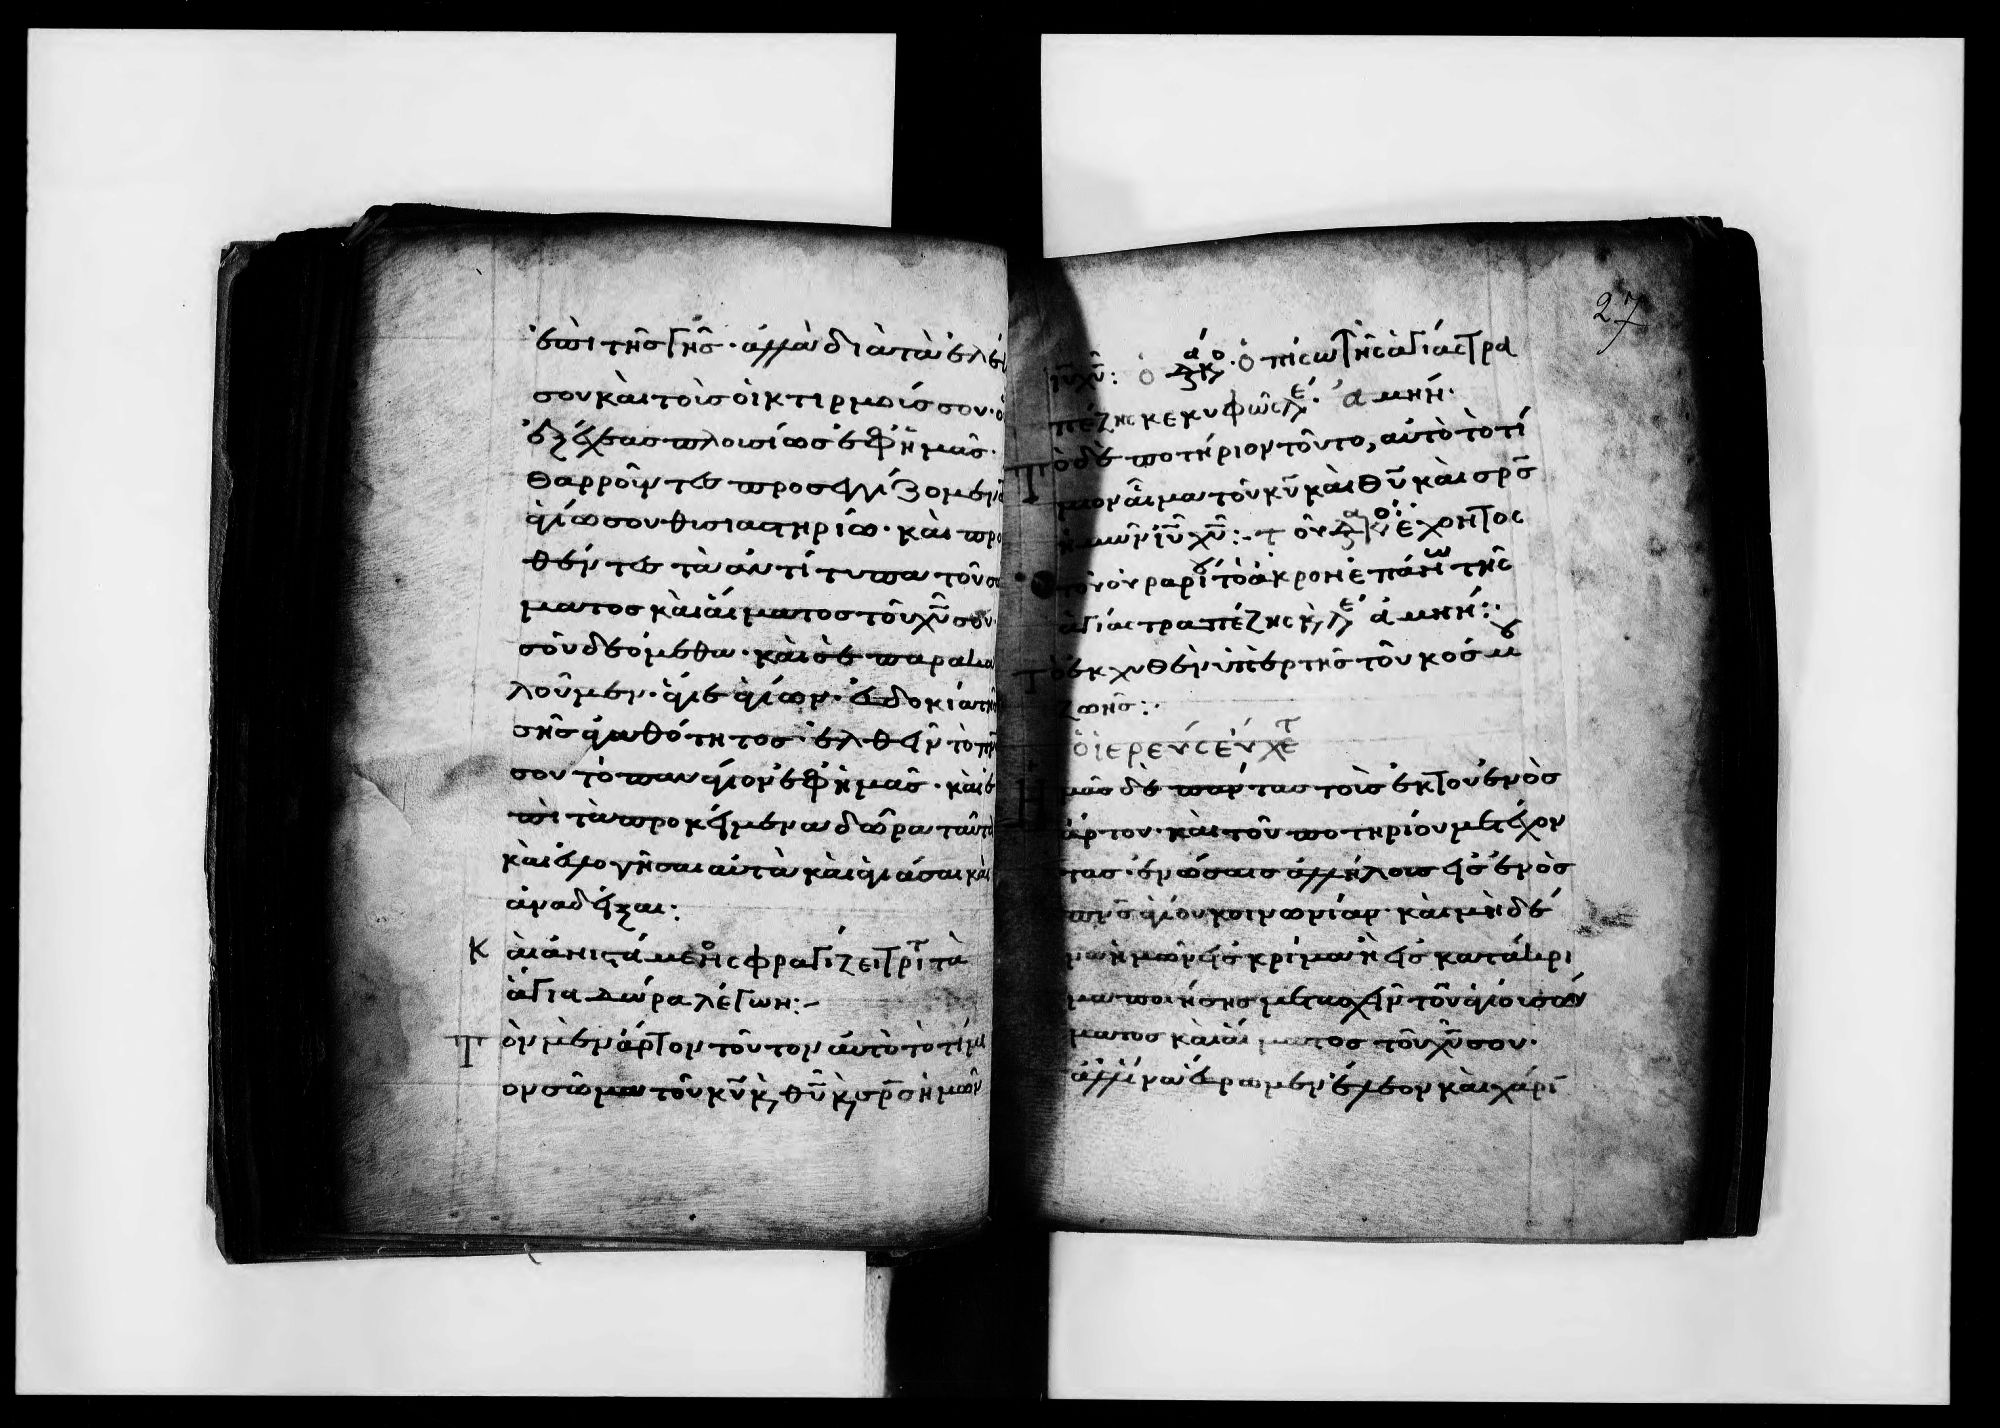 ἐπὶ τῆς γῆς· ἀλλὰ διὰ τὰ ἐλέη
σου καὶ τοὺς οἰκτιρμούς σου· οὓς
ἐξέχεας πλουσίως ἐφ ἡμᾶς·
θαρροῦντες προσεγγίζομεν τῷ
ἁγίω σου θυσιαστηρίω· καὶ προ
θέντες τὰ ἀντίτυπα τοῦ σώ
ματος καὶ αἵματος τοῦ χῦ σου·
σοῦ δεόμεθα· καὶ σὲ παρακα
λοῦμεν· ἅγιε ἁγίων· εὐδοκία τῆς
σῆς ἀγαθότητος· ἐλθεῖν τὸ πνᾶ
σου τὸ πανάγιον ἐφ ἡμᾶς· καὶ ἐ
πὶ τὰ προκείμενα δῶρα ταῦτα
καὶ εὐλογῆσαι αὐτὰ καὶ ἁγιάσαι καὶ
ἀναδεῖξαι:
Κ αὶ ἀνιστάμενος σφραγίζει τρίτ τὰ
ἅγια δώρα λέγων:–
Τ ὸν μὲν ἄρτον τοῦτον αὐτὸ τὸ τίμι
ον σῶμα τοῦ κῦ κ, θῦ κ, σρς ἡμῶν
ἰῦ χῦ: ὁ διακο. ὁ πίσω τῆς ἁγίας τρα
πέζης κεκυφῶς λέ· ἀμήν·
Τ ὸ δὲ ποτήριον τοῦτο, αὐτὸ τὸ τί
μιον αἷμα τοῦ κῦ καὶ θῦ καὶ σρς
ἡμῶν ἰῦ χῦ:· τ οῦ διακο: ἔχοντος
τοῦ ὀραρίου τὸ ἄκρον ἐπάνω τῆς
ἁγίας τραπέζης κ, λέ ἀμήν:·
Τ ὸ ἐκχυθὲν ὑπὲρ τῆς τοῦ κόσμου
ζωῆς:·
ὁ ἱερεὺς εὔχετ
Η μᾶς δὲ πάντας τοὺς ἐκ τοῦ ἑνὸς
ἄρτου· καὶ τοῦ ποτηρίου μετέχον
τας· ἑνώσαις ἀλλήλοις εἰς ἑνὸς
πνς ἁγίου κοινωνίαν· καὶ μηδέ
να ἡμῶν εἰς κρίμα ἢ εἰς κατάκρι
μα ποιήσης μετασχεῖν τοῦ ἁγίου σώ
ματος καὶ αἵματος τοῦ χῦ σου·
ἀλλ ἵνα εὕρωμεν ἔλεον καὶ χάριν
27